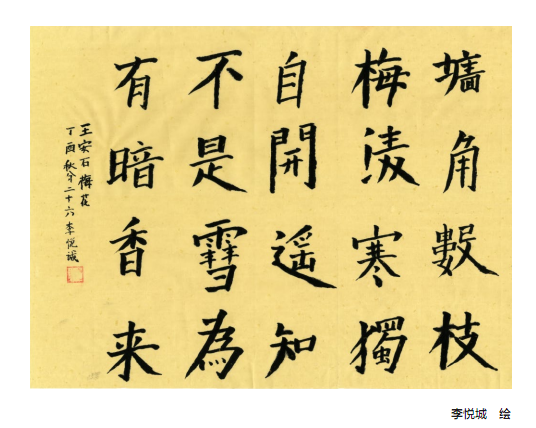 墻角數枝
梅淩寒獨
自開遥知
不是雪為
有暗香来
王安石梅花
丁酉秋分二十六李悦
李悦城 绘